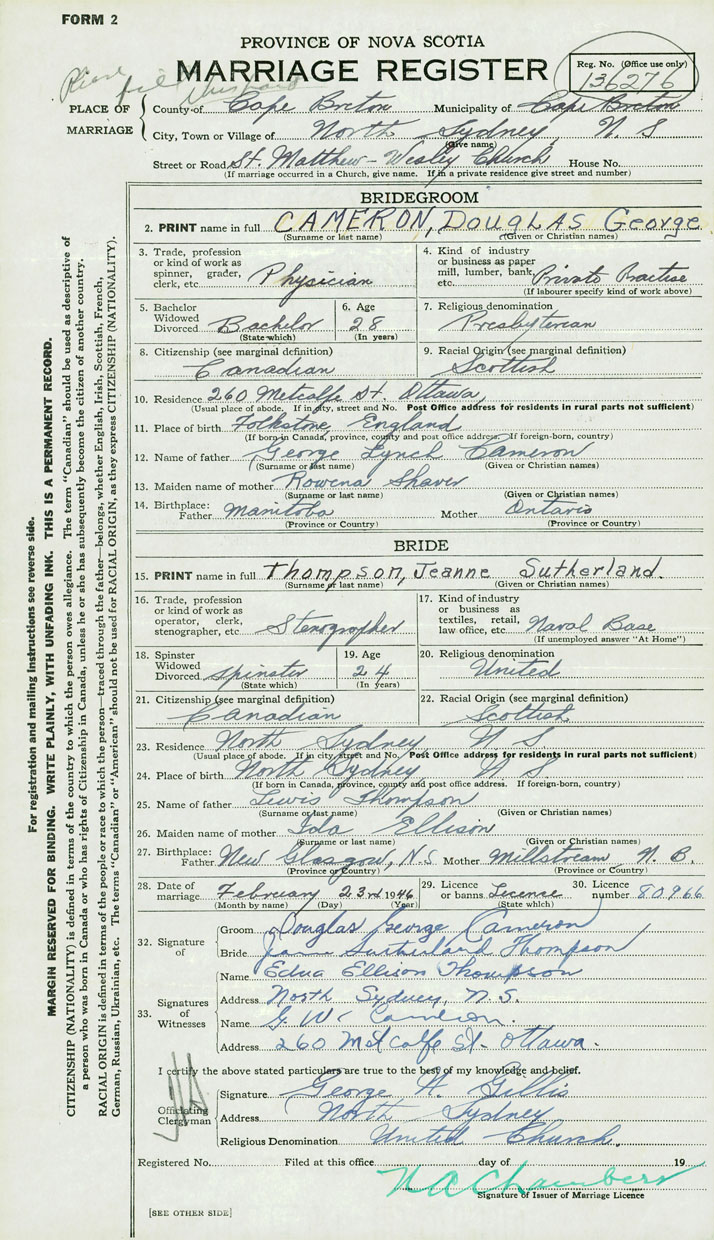 FORM 2
PROVINCE OF NOVA SCOTIA
MARRIAGE REGISTER
Reg. No. (Office use only)
136276
Please file
PLACE OF MARRIAGE
County of Cape Breton Municipality of Cape Breton
City, Town or Village of North Sydney, N S
(Give name)
Street or Road St. Matthew-Wesley Church House No.
(If marriage occurred in a Church, give name. If in a private residence give street and number)
BRIDEGROOM
2. PRINT name in full CAMERON, DOUGLAS George
(Surname or last name) (Given or Christian names)
3. Trade, profession or kind of work as spinner, grader, clerk, etc. Physician
4. Kind of industry or business as paper mill, lumber, bank, etc. Private Practise
(If labourer specify kind of work above)
5. Bachelor Widowed Divorced Bachelor
(State which)
6. Age 28
(In years)
7. Religious denomination Presbyterian
8. Citizenship (see marginal definition) Canadian
9. Racial Origin (see marginal definition) Scottish
10. Residence 260 Metcalfe St. Ottawa,
(Usual place of abode. If in city, street and No. Post Office address for residents in rural parts not sufficient)
11. Place of birth Folkstone, England
(If born in Canada, province, county and post office address. If foreign-born, country)
12. Name of father George Lynch Cameron
(Surname or last name) (Given or Christian names)
13. Maiden name of mother Rowena Shaver
(Surname or last name) (Given or Christian names)
14. Birthplace: Father Manitoba Mother Ontario
(Province or Country) (Province or Country)
BRIDE
15. PRINT name in full Thompson, Jeanne Sutherland.
(Surname or last name) (Given or Christian names)
16. Trade, profession or kind of work as operator, clerk, stenographer, etc Stenographer
17. Kind of industry or business as textiles, retail, law office, etc. Naval Base
(If unemployed answer "At Home")
18. Spinster Widowed Divorced Spinster
(State which)
19. Age 24
(In years)
20. Religious denomination United
21. Citizenship (see marginal definition) Canadian
22. Racial Origin (see marginal definition) Scottish
23. Residence North Sydney N S
(Usual place of abode. If in city, street and No. Post Office address for residents in rural parts not sufficient)
24. Place of birth North Sydney N S
(If born in Canada, province, county and post office address. If foreign-born, country)
25. Name of father Lewis Thompson
(Surname or last name) (Given or Christian names)
26. Maiden name of mother Ida Ellison
(Surname or last name) (Given or Christian names)
27. Birthplace: Father New Glasgow, N.S Mother Millstream N. B.
(Province or Country) (Province or Country)
28. Date of marriage February 23rd 1946
(Month by name) (Day) (Year)
29. Licence or banns Licence
(State which)
30. Licence number 80966
32. Signature of
Groom Douglas George Cameron
Bride Jean Sutherland Thompson
33. Signatures of Witnesses
Name Edna Ellison Thompson
Address North Sydney, N.S.
Name G. W. Cameron
Address 260 Metcalfe St- Ottawa.
I certify the above stated particulars are true to the best of my knowledge and belief.
Officiating Clergyman
Signature George A. Gillis
Address North Sydney
Religious Denomination United Church.
Registered No. Filed at this office day of 19
N A Chambers
Signature of Issuer of Marriage Licence
[SEE OTHER SIDE]
For registration and mailing instructions see reverse side.
MARGIN RESERVED FOR BINDING. WRITE PLAINLY, WITH UNFADING INK. THIS IS A PERMANENT RECORD.
CITIZENSHIP (NATIONALITY) is defined in terms of the country to which the person owes allegiance. The term "Canadian" should be used as descriptive of
a person who was born in Canada or who has rights of Citizenship in Canada, unless he or she has subsequently become the citizen of another country.
RACIAL ORIGIN is defined in terms of the people or race to which the person—traced through the father—belongs, whether English, Irish, Scottish, French,
German, Russian, Ukrainian, etc. The terms "Canadian" or "American" should not be used for RACIAL ORIGIN, as they express CITIZENSHIP (NATIONALITY).